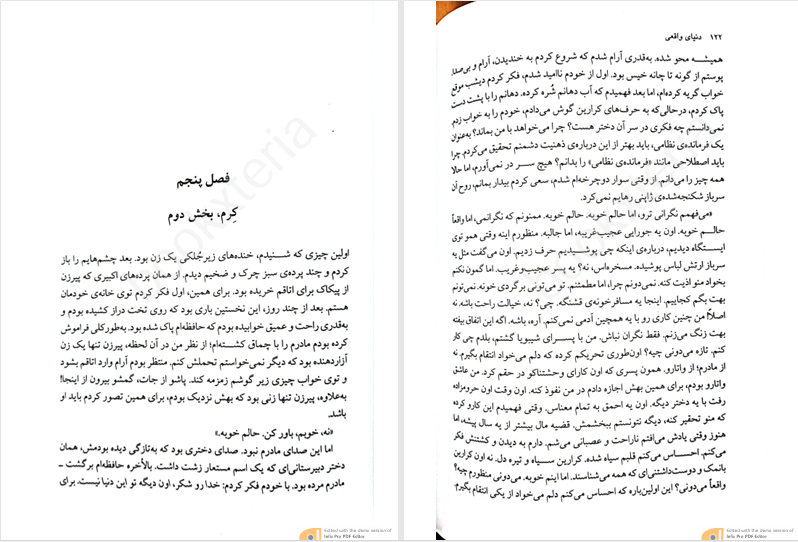 ۱۲۲ دنیای واقعی
همیشه محو شده. به‌قدری آرام شدم که شروع کردم به خندیدن، آرام و بی‌صدا.
پوستم از گونه تا چانه خیس بود. اول از خودم ناامید شدم، فکر کردم دیشب موقع
خواب گریه کرده‌ام، اما بعد فهمیدم که آب دهانم شُره کرده. دهانم را با پشت دست
پاک کردم، درحالی‌که به حرف‌های کرارین گوش می‌دادم، خودم را به خواب زدم.
نمی‌دانستم چه فکری در سر آن دختر هست؟ چرا می‌خواهد با من بماند؟ به‌عنوان
یک فرمانده‌ی نظامی، باید بهتر از این درباره‌ی ذهنیت دشمنم تحقیق می‌کردم. چرا
باید اصطلاحی مانند «فرمانده‌ی نظامی» را بدانم؟ هیچ سر در نمی‌آورم، اما حالا
همه چیز را می‌دانم. از وقتی سوار دوچرخه‌ام شدم، سعی کردم بیدار بمانم، روح آن
سرباز شکنجه‌شده‌ی ژاپنی رهایم نمی‌کرد.
«می‌فهمم نگرانی ترو، اما حالم خوبه. حالم خوبه. ممنونم که نگرانمی، اما واقعاً
حالم خوبه. اون یه جورایی عجیب‌غریبه، اما جالبه. منظورم اینه وقتی همو توی
ایستگاه دیدیم، درباره‌ی اینکه چی پوشیدیم حرف زدیم. اون می‌گفت مثل یه
سرباز ارتش لباس پوشیده. مسخره‌اس، نه؟ یه پسر عجیب‌وغریب. اما گمون نکنم
بخواد منو اذیت کنه. نمی‌دونم چرا، اما مطمئنم. تو می‌تونی برگردی خونه. نمی‌تونم
بهت بگم کجاییم. اینجا یه مسافرخونه‌ی قشنگه. چی؟ نه، خیالت راحت باشه. نه
اصلاً! من چنین کاری رو با یه همچین آدمی نمی‌کنم. آره، باشه. اگه این اتفاق بیفته
بهت زنگ می‌زنم. فقط نگران نباش. من با پسرای شیبویا گشتم، بلدم چی کار
کنم. تازه می‌دونی چیه؟ اون‌طوری تحریکم کرده که دلم می‌خواد انتقام بگیرم. نه
از مادرم؛ از واتارو. همون پسری که اون کارای وحشتناکو در حقم کرد. من عاشق
واتارو بودم، برای همین بهش اجازه دادم در من نفوذ کنه. اون وقت اون حرومزاده
رفت با یه دختر دیگه. اون یه احمق به تمام معناس. وقتی فهمیدم این کارو کرده
که منو تحقیر کنه، دیگه نتونستم ببخشمش. قضیه مال بیشتر از یه سال پیشه، اما
هنوز وقتی یادش می‌افتم ناراحت و عصبانی می‌شم. دارم به دیدن و کشتنش فکر
می‌کنم. احساس می‌کنم قلبم سیاه شده. کرارین سیاه و تیره دل. نه اون کرارین
بانمک و دوست‌داشتنی‌ای که همه می‌شناسند. اما اینم خوبه. می‌دونی منظورم چیه؟
واقعاً می‌دونی؟ این اولین‌باره که احساس می‌کنم دلم می‌خواد از یکی انتقام بگیرم.
فصل پنجم
کِرم، بخش دوم
اولین چیزی که شنیدم، خنده‌های زیرجُلکی یک زن بود. بعد چشم‌هایم را باز
کردم و چند پرده‌ی سبز چرک و ضخیم دیدم. از همان پرده‌های اکبیری که پیرزن
از پیکاک برای اتاقم خریده بود. برای همین، اول فکر کردم توی خانه‌ی خودمان
هستم. بعد از چند روز، این نخستین باری بود که روی تخت دراز کشیده بودم و
به‌قدری راحت و عمیق خوابیده بودم که حافظه‌ام پاک شده بود. به‌طورکلی فراموش
کرده بودم مادرم را با چماق کشته‌ام؛ از نظر من در آن لحظه، پیرزن تنها یک زن
آزاردهنده بود که دیگر نمی‌خواستم تحملش کنم. منتظر بودم آرام وارد اتاقم بشود
و توی خواب چیزی زیر گوشم زمزمه کند. پاشو از جات، گمشو بیرون از اینجا!
به‌علاوه، پیرزن تنها زنی بود که بهش نزدیک بودم، برای همین تصور کردم باید او
باشد.
«نه، خوبم، باور کن. حالم خوبه.»
اما این صدای مادرم نبود. صدای دختری بود که به‌تازگی دیده بودمش، همان
دختر دبیرستانی‌ای که یک اسم مستعار زشت داشت. بالأخره حافظه‌ام برگشت ـ
مادرم مرده بود. با خودم فکر کردم: خدا رو شکر، اون دیگه تو این دنیا نیست. برای
Edited with the demo version of
Infix Pro PDF Editor
Edited with the demo version of
Infix Pro PDF Editor